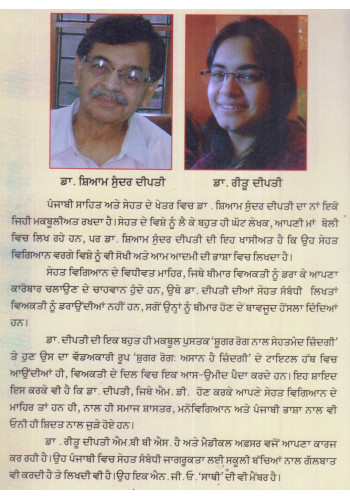 ਡਾ. ਸ਼ਿਆਮ ਸੁੰਦਰ ਦੀਪਤੀ
ਡਾ. ਰੀਤੂ ਦੀਪਤੀ
ਪੰਜਾਬੀ ਸਾਹਿਤ ਅਤੇ ਸੇਹਤ ਦੇ ਖੇਤਰ ਵਿਚ ਡਾ. ਸ਼ਿਆਮ ਸੁੰਦਰ ਦੀਪਤੀ ਦਾ ਨਾਂ ਇਕੋ
ਜਿਹੀ ਮਕਬੂਲੀਅਤ ਰਖਦਾ ਹੈ। ਸੇਹਤ ਦੇ ਵਿਸ਼ੇ ਨੂੰ ਲੈ ਕੇ ਬਹੁਤ ਹੀ ਘੱਟ ਲੇਖਕ, ਆਪਣੀ ਮਾਂ ਬੋਲੀ
ਵਿਚ ਲਿਖ ਰਹੇ ਹਨ, ਪਰ ਡਾ. ਸ਼ਿਆਮ ਸੁੰਦਰ ਦੀਪਤੀ ਦੀ ਇਹ ਖਾਸੀਅਤ ਹੈ ਕਿ ਉਹ ਸੇਹਤ
ਵਿਗਿਆਨ ਵਰਗੇ ਵਿਸ਼ੇ ਨੂੰ ਵੀ ਸੌਖੀ ਅਤੇ ਆਮ ਆਦਮੀ ਦੀ ਭਾਸ਼ਾ ਵਿਚ ਲਿਖਦਾ ਹੈ।
ਸੇਹਤ ਵਿਗਿਆਨ ਦੇ ਵਿਧੀਵਤ ਮਾਹਿਰ, ਜਿਥੇ ਬੀਮਾਰ ਵਿਅਕਤੀ ਨੂੰ ਡਰਾ ਕੇ ਆਪਣਾ
ਕਾਰੋਬਾਰ ਚਲਾਉਣ ਦੇ ਚਾਹਵਾਨ ਹੁੰਦੇ ਹਨ, ਉਥੇ ਡਾ. ਦੀਪਤੀ ਦੀਆਂ ਸੇਹਤ ਸੰਬੰਧੀ ਲਿਖਤਾਂ
ਵਿਅਕਤੀ ਨੂੰ ਡਰਾਉਂਦੀਆਂ ਨਹੀਂ ਹਨ, ਸਗੋਂ ਉਨ੍ਹਾਂ ਨੂੰ ਬੀਮਾਰ ਹੋਣ ਦੇ ਬਾਵਜੂਦ ਹੌਸਲਾ ਦਿੰਦਿਆਂ
ਹਨ।
ਡਾ. ਦੀਪਤੀ ਦੀ ਇਕ ਬਹੁਤ ਹੀ ਮਕਬੂਲ ਪੁਸਤਕ 'ਸ਼ੂਗਰ ਰੋਗ ਨਾਲ ਸੇਹਤਮੰਦ ਜ਼ਿੰਦਗੀ'
ਤੇ ਹੁਣ ਉਸ ਦਾ ਵੱਡਅਕਾਰੀ ਰੂਪ 'ਸ਼ੂਗਰ ਰੋਗ: ਅਸਾਨ ਹੈ ਜ਼ਿੰਦਗੀ' ਦੇ ਟਾਇਟਲ ਹੱਥ ਵਿਚ
ਆਉਂਦਿਆਂ ਹੀ, ਵਿਅਕਤੀ ਦੇ ਦਿਲ ਵਿਚ ਇਕ ਆਸ-ਉਮੀਦ ਪੈਦਾ ਕਰਦੇ ਹਨ। ਇਹ ਸ਼ਾਇਦ
ਇਸ ਕਰਕੇ ਵੀ ਹੈ ਕਿ ਡਾ. ਦੀਪਤੀ, ਜਿਥੇ ਐਮ.ਡੀ. ਹੋਣ ਕਰਕੇ ਆਪਣੇ ਸੇਹਤ ਵਿਗਿਆਨ ਦੇ
ਮਾਹਿਰ ਤਾਂ ਹਨ ਹੀ, ਨਾਲ ਹੀ ਸਮਾਜ ਸ਼ਾਸਤਰ, ਮਨੋਵਿਗਿਆਨ ਅਤੇ ਪੰਜਾਬੀ ਭਾਸ਼ਾ ਨਾਲ ਵੀ
ਓਨੀ ਹੀ ਸ਼ਿਦਤ ਨਾਲ ਜੁੜੇ ਹੋਏ ਹਨ।
ਡਾ. ਰੀਤੂ ਦੀਪਤੀ ਐਮ.ਬੀ ਬੀ ਐਸ. ਹੈ ਅਤੇ ਮੈਡੀਕਲ ਅਫ਼ਸਰ ਵਜੋਂ ਆਪਣਾ ਕਾਰਜ
ਕਰ ਰਹੀ ਹੈ। ਉਹ ਪੰਜਾਬੀ ਵਿਚ ਸੇਹਤ ਸੰਬੰਧੀ ਜਾਗਰੂਕਤਾ ਲਈ ਸਕੂਲੀ ਬੱਚਿਆਂ ਨਾਲ ਗੱਲਬਾਤ
ਵੀ ਕਰਦੀ ਹੈ ਤੇ ਲਿਖਦੀ ਵੀ ਹੈ। ਉਹ ਇਕ ਐਨ.ਜੀ.ਓ. 'ਸਾਥੀ' ਦੀ ਵੀ ਮੈਂਬਰ ਹੈ।